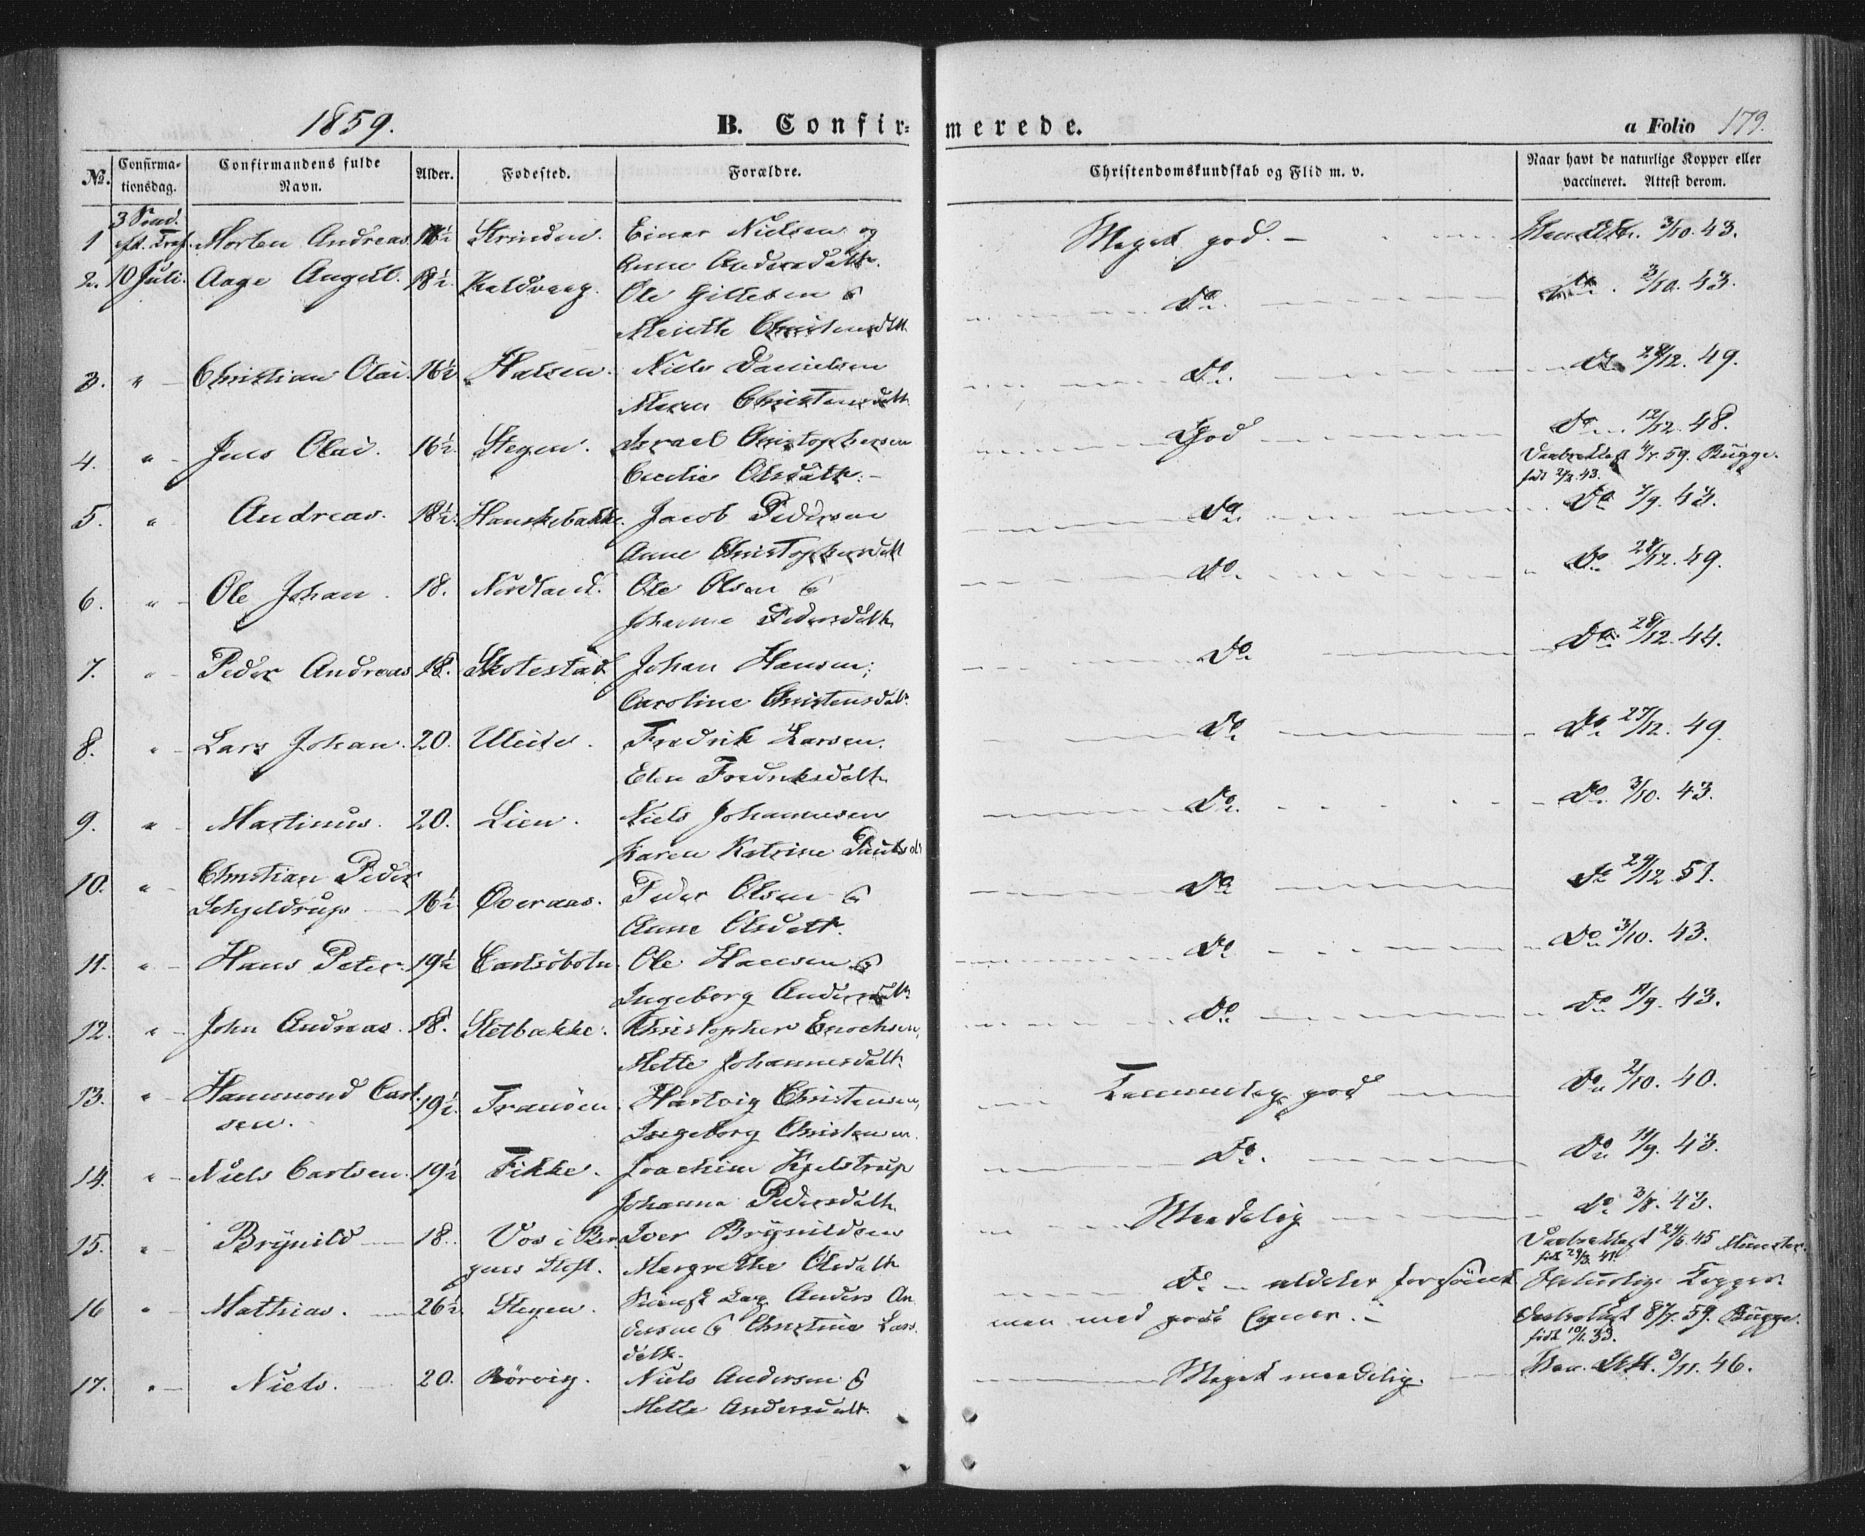 1859.
B. Confir=
merede.
a Folio 179.
No. Confirma-tionsdag. Confirmandens fulde Navn. Alder. Fødested. Forældre. Christendomskundskab og Flid m. v. Naar havt de naturlige Kopper eller vaccineret. Attest derom.
1 3 Sønd. eft. Tref. Morten Andreas 18½ Strinden. Einer Nielsen og Meget god. 3/10. 43.
Anne Andersdatt.
2. 10 Juli. Aage Angell. 18½ Kaldvaag. Ole Gillesen & Do. 3/10. 43.
Merethe Christensdtt.
3. " Christian Olai. 16½ Halsen. Niels Danielsen Do. Do 28/12. 49.
Maren Christensdatt.
4. " Jens Olai. 16½ Stegen. Israel Christophersen God Do 12/12. 48.
Cecilie Olsdatt.
Daabsattest 4/7. 59. Bugge.
født 43.
5. " Andreas. 18½. Hanskebakke. Jacob Pedersen Do. Do 7/9. 43.
Anne Christophersdatt
6. " Ole Johan 18. Nordland. Ole Olsen & Do. Do. 28/12. 49.
Johanna Pedersdatt.
7. " Peder Andreas 18. Skotestad Johan Hansen; Do Do. 28/12. 44.
Caroline Christensdat.
8. " Lars Johan. 20. Fredrik Larsen. Do Do 27/12. 49
Elen Fredriksdatt.
9. " Martinus. 20. Lien. Niels Johannesen Do. Do. 3/10. 43.
Karen Katrine
10. " Christian Peder
Schjeldrup 16½ Øveraas. Peder Olsen & Do Do 29/12 51.
Anne Olsdatt.
11. " Hans Peter. 19½ Carlsöbotn. Ole Hansen & Do Do 3/10. 43.
Ingeborg Andersdatt.
12. " John Andreas. 18. Sletbakke. Christopher Enochsen, Do Do 11/9. 43.
Mette Johannesdatt.
13. " Hammond Carl-
sen. 19½. Tranöen. Hartvig Christensen, Temmelig god Do 2/10. 40.
Ingeborg Christensen.
14. " Niels Carlsen. 19½ Fikke. Joachim Kjelstrup Do. Do. 11/9. 43.
Johanna Pedersdatt.
15. " Brynild 18. Vos i Ber-
gens Stift. Iver Brynildsen Maadelig Do 3/8. 43.
Margrethe Olsdatt.
Daabsattest 29/6. 45
født 29/3. 41.
16 " Mathias. 26½ Stegen. Lap Anders An-
dersen & Christine Lars-
datt.
Do. aldeles forsömt
men med gode Evner.
Naturlige Kopper.
Daabsattest 8/7. 59. Bugge.
født 33.
17. " Niels. 20. Rörvig. Niels Andersen & Meget maadelig. 3/11. 46.
Mette Andersdatt.